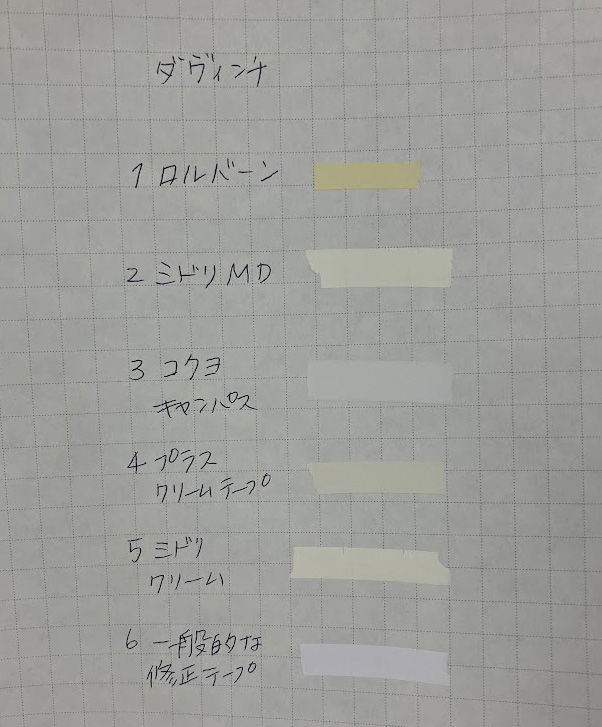 ダヴィンチ
1 ロルバーン
2 ミドリ MD
3 コクヨ
キャンパス
4 プラス
クリームテープ
5 ミドリ
クリーム
6 一般的な
修正テープ